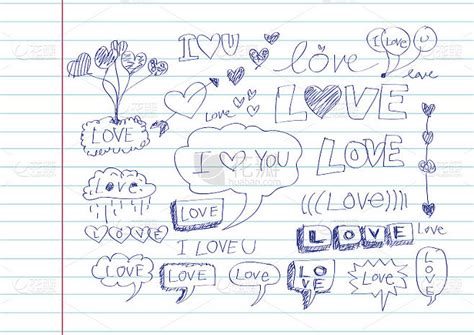 I ♥ U
love
I Love U
love
L♥VE
Love
LOVE
LOVE
I ♥ YOU
Love
(((Love))))
LOVE
LOVE
LOVE
Love
I LOVE U
LOVE
LOVE
Love
LO
VE
Love
LOVE